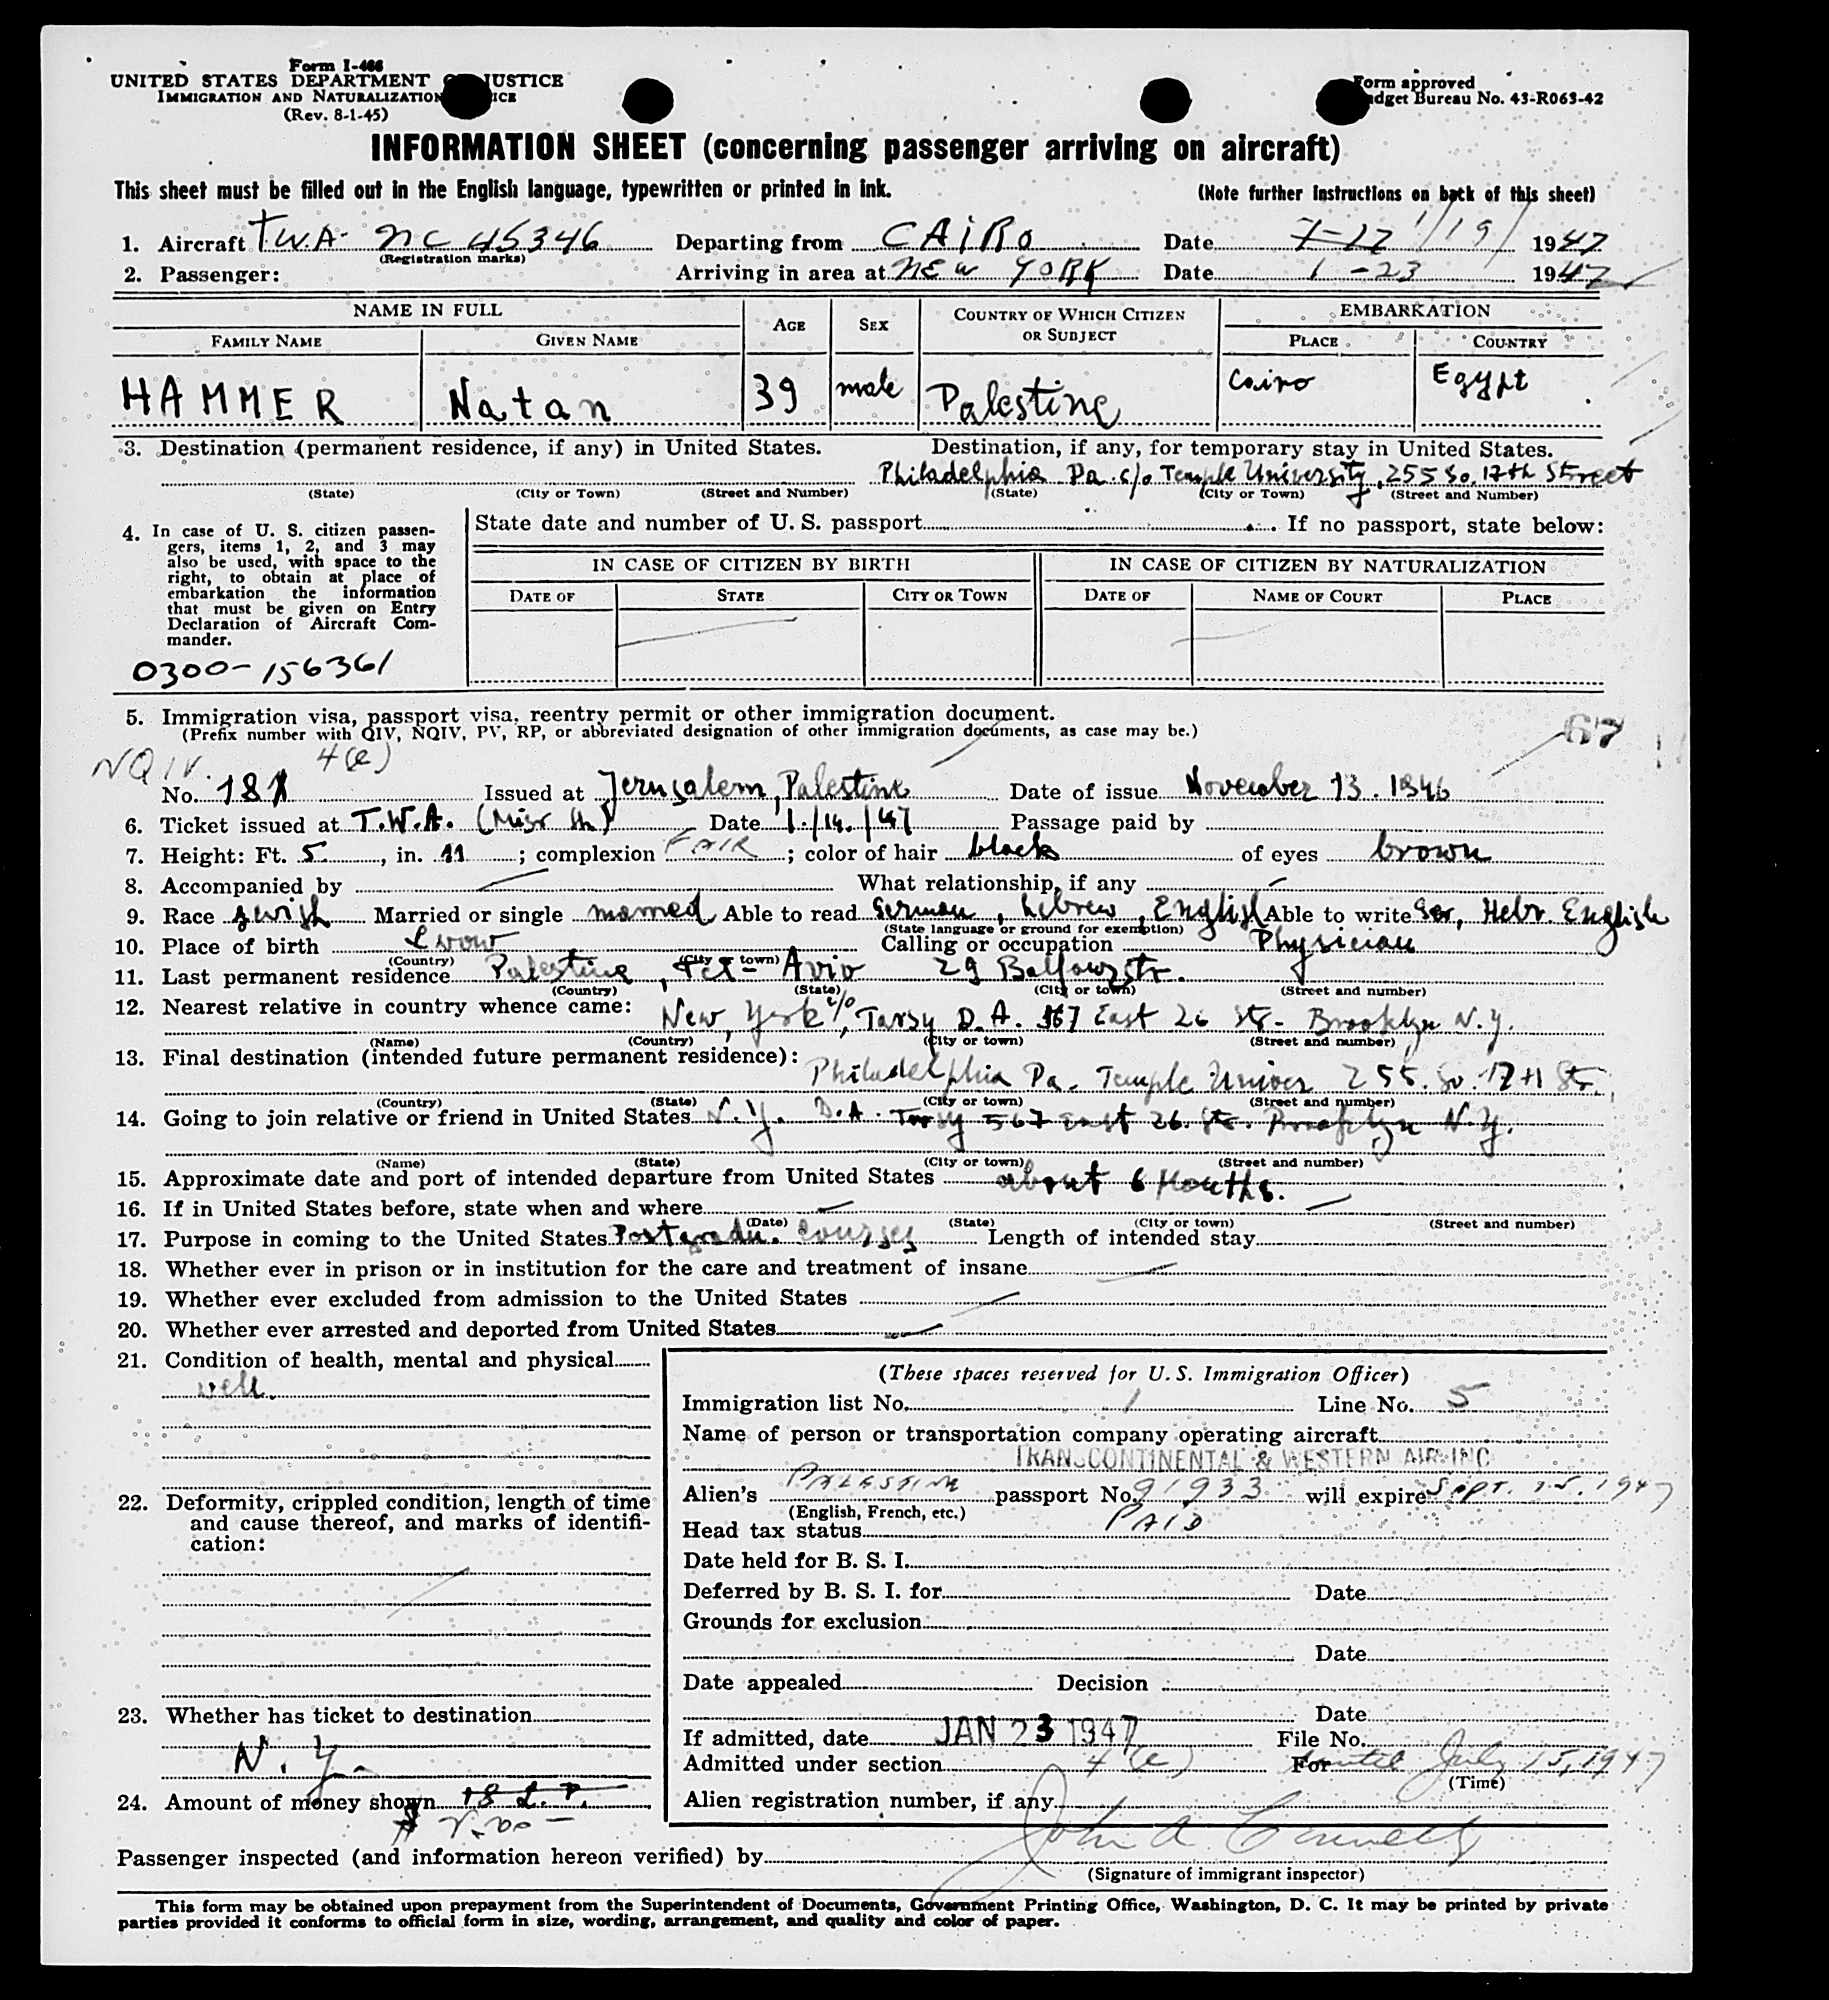 Form I-466
UNITED STATES DEPARTMENT OF JUSTICE
IMMIGRATION AND NATURALIZATION SERVICE
(Rev. 8-1-45)
Form approved
Budget Bureau No. 43-R063-42
INFORMATION SHEET (concerning passenger arriving on aircraft)
This sheet must be filled out in the English language, typewritten or printed in ink.
(Note further instructions on back of this sheet)
1. Aircraft T.W.A. NC 45346 Departing from CAIRO Date 1/19/ 1947
(Registration marks)
2. Passenger: Arriving in area at NEW YORK Date 1-23 1947
NAME IN FULL AGE SEX COUNTRY OF WHICH CITIZEN OR SUBJECT EMBARKATION
FAMILY NAME GIVEN NAME PLACE COUNTRY
HAMMER Natan 39 male Palestine Cairo Egypt
3. Destination (permanent residence, if any) in United States. Destination, if any, for temporary stay in United States.
Philadelphia Pa. c/o Temple University, 255 So. 17th Street
(State) (City or Town) (Street and Number) (State) (City or Town) (Street and Number)
4. In case of U. S. citizen passengers, items 1, 2, and 3 may also be used, with space to the right, to obtain at place of embarkation the information that must be given on Entry Declaration of Aircraft Commander.
0300-156361
State date and number of U. S. passport If no passport, state below:
IN CASE OF CITIZEN BY BIRTH IN CASE OF CITIZEN BY NATURALIZATION
DATE OF STATE CITY OR TOWN DATE OF NAME OF COURT PLACE
5. Immigration visa, passport visa, reentry permit or other immigration document.
(Prefix number with QIV, NQIV, PV, RP, or abbreviated designation of other immigration documents, as case may be.)
67
NQIV. 4(e)
No. 181 Issued at Jerusalem, Palestine Date of issue November 13. 1946
6. Ticket issued at T.W.A. (Misr Date 1./14./47 Passage paid by
7. Height: Ft. 5, in. 11; complexion FAIR; color of hair black of eyes brown
8. Accompanied by What relationship, if any
9. Race Jewish Married or single married Able to read German, Hebrew, English Able to write Ger, Hebr. English
(State language or ground for exemption)
10. Place of birth Lwow Calling or occupation Physician
(Country) (City or town)
11. Last permanent residence Palestine, Tel-Aviv 29 Balfour str.
(Country) (State) (City or town) (Street and number)
12. Nearest relative in country whence came: New York c/o, Tarsy D. A. 567 East 26 Str. Brooklyn N.Y.
(Name) (Country) (City or town) (Street and number)
13. Final destination (intended future permanent residence): Philadelphia Pa. Temple Univer 255. So. 17th Str.
(Country) (State) (City or town) (Street and number)
14. Going to join relative or friend in United States N.Y. D.A. Tarsy 567 East 26. Str. Brooklyn N.Y.
(Name) (State) (City or town) (Street and number)
15. Approximate date and port of intended departure from United States about 6 Months.
16. If in United States before, state when and where
(Date) (State) (City or town) (Street and number)
17. Purpose in coming to the United States Postgradu. courses Length of intended stay
18. Whether ever in prison or in institution for the care and treatment of insane
19. Whether ever excluded from admission to the United States
20. Whether ever arrested and deported from United States
21. Condition of health, mental and physical
well.
22. Deformity, crippled condition, length of time and cause thereof, and marks of identification:
23. Whether has ticket to destination
N. Y.
24. Amount of money shown 18 L.P.
(These spaces reserved for U. S. Immigration Officer)
Immigration list No. 1 Line No. 5
Name of person or transportation company operating aircraft
TRANSCONTINENTAL & WESTERN AIR INC
Alien's PALESTINE passport No. 91933 will expire Sept. 25. 1947
(English, French, etc.)
Head tax status PAID
Date held for B. S. I.
Deferred by B. S. I. for Date
Grounds for exclusion
Date
Date appealed Decision
Date
If admitted, date JAN 23 1947 File No.
Admitted under section 4 (e) For until July 15, 1947
(Time)
Alien registration number, if any
Passenger inspected (and information hereon verified) by John A
(Signature of immigrant inspector)
This form may be obtained upon prepayment from the Superintendent of Documents, Government Printing Office, Washington, D. C. It may be printed by private
parties provided it conforms to official form in size, wording, arrangement, and quality and color of paper.